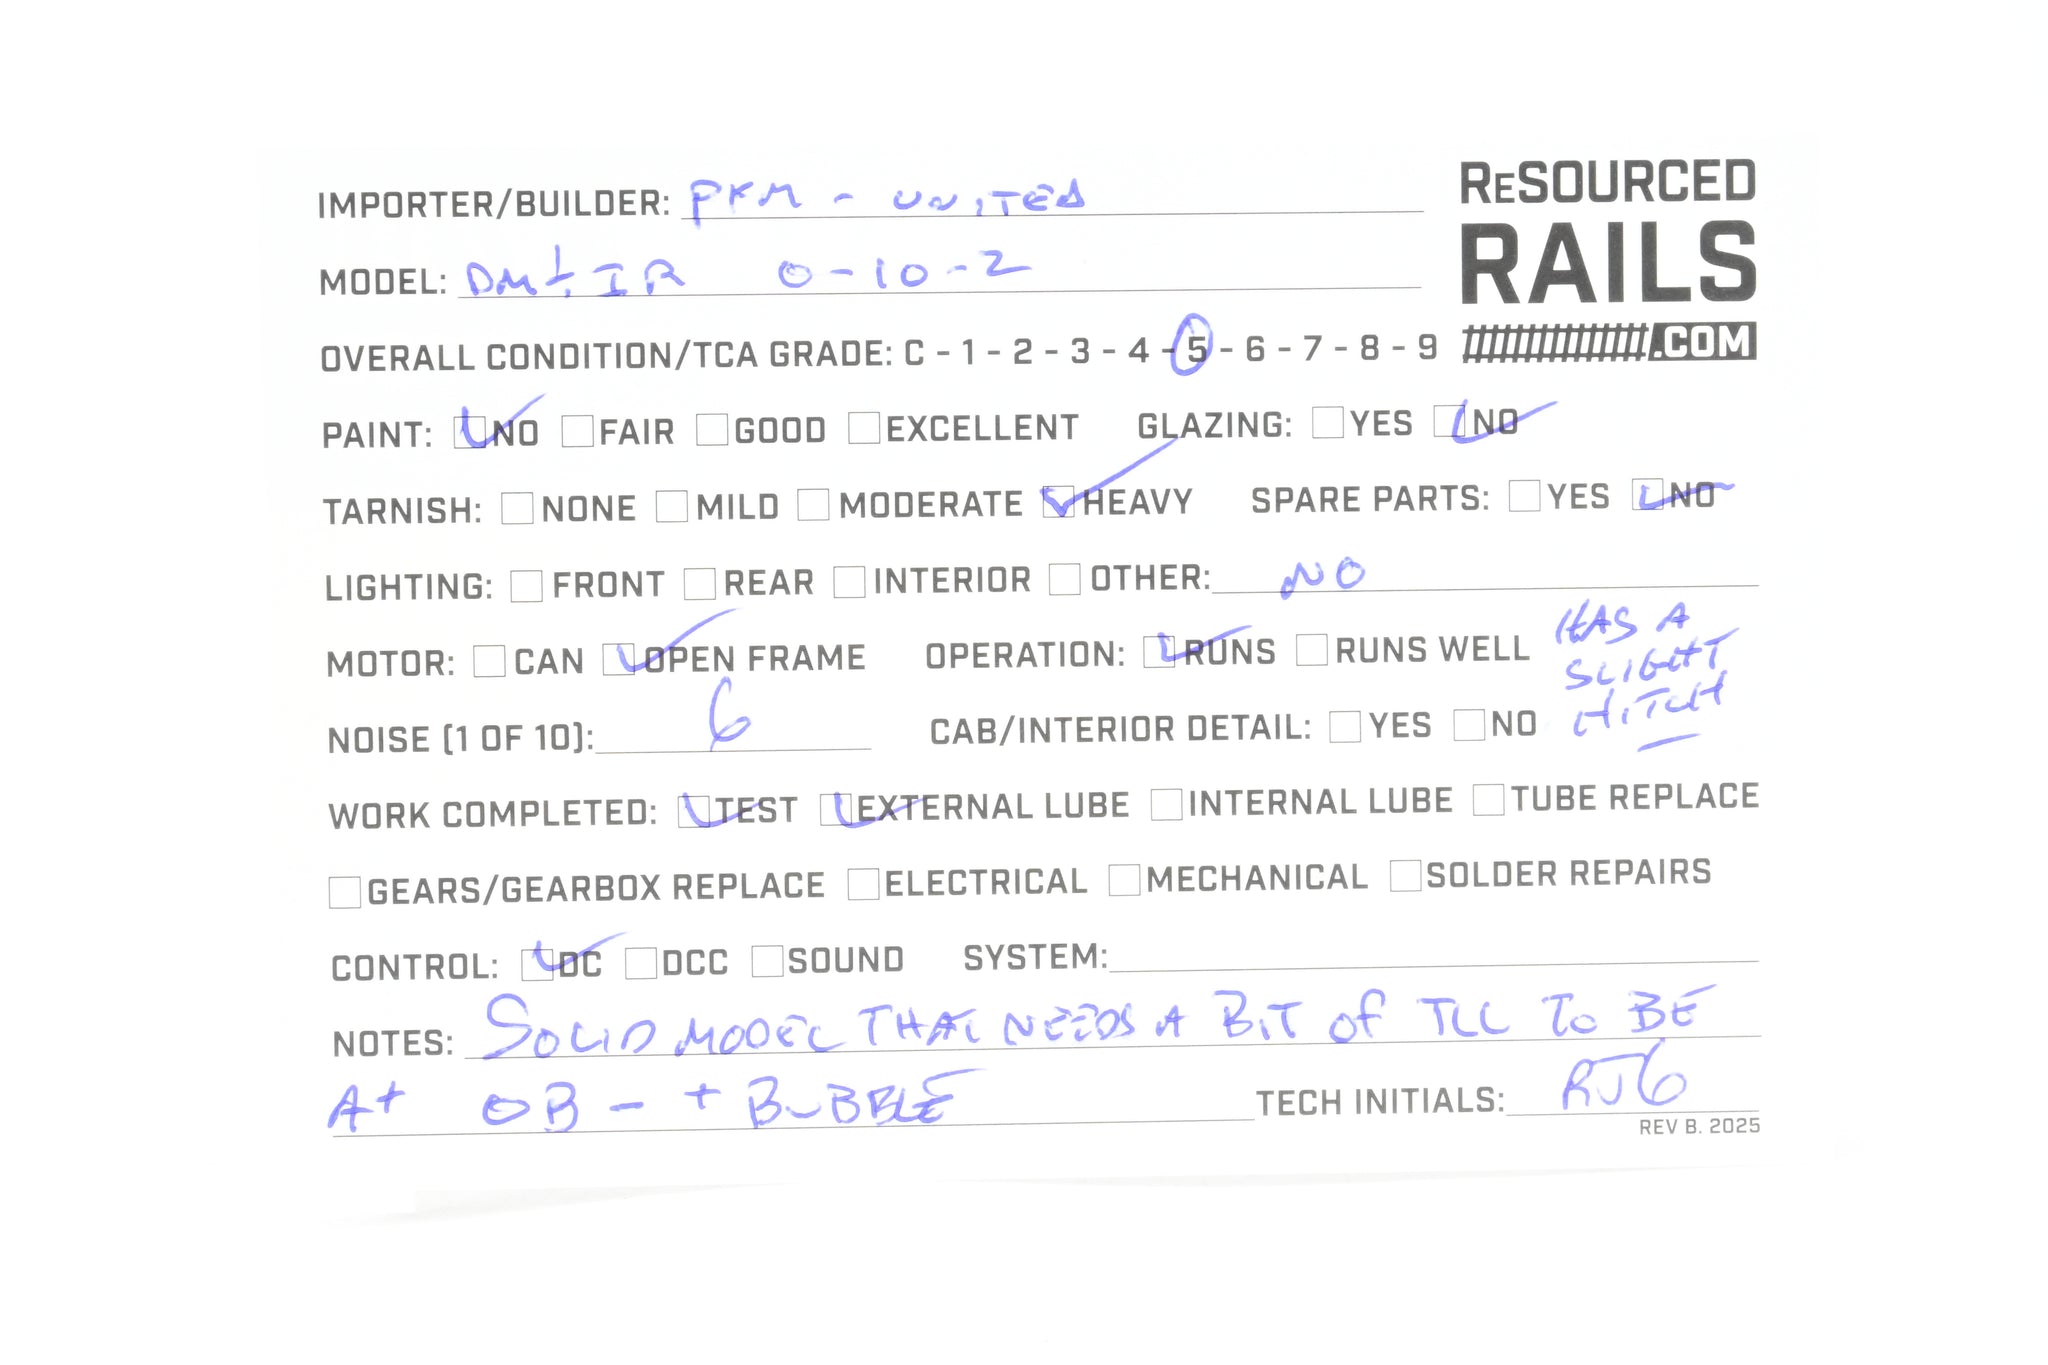 IMPORTER/BUILDER: PFM - UNITED
ReSOURCED
RAILS
.COM
MODEL: DM+IR 0-10-2
OVERALL CONDITION/TCA GRADE: C - 1 - 2 - 3 - 4 - 5 - 6 - 7 - 8 - 9
PAINT: NO FAIR GOOD EXCELLENT GLAZING: YES NO
TARNISH: NONE MILD MODERATE HEAVY SPARE PARTS: YES NO
LIGHTING: FRONT REAR INTERIOR OTHER: NO
MOTOR: CAN OPEN FRAME OPERATION: RUNS RUNS WELL
HAS A
SLIGHT
HITCH
NOISE (1 OF 10): 6 CAB/INTERIOR DETAIL: YES NO
WORK COMPLETED: TEST EXTERNAL LUBE INTERNAL LUBE TUBE REPLACE
GEARS/GEARBOX REPLACE ELECTRICAL MECHANICAL SOLDER REPAIRS
CONTROL: DC DCC SOUND SYSTEM:
NOTES: SOLID MODEL THAT NEEDS A BIT OF TLC TO BE
A+ OB - + BUBBLE TECH INITIALS: RJG
REV B. 2025